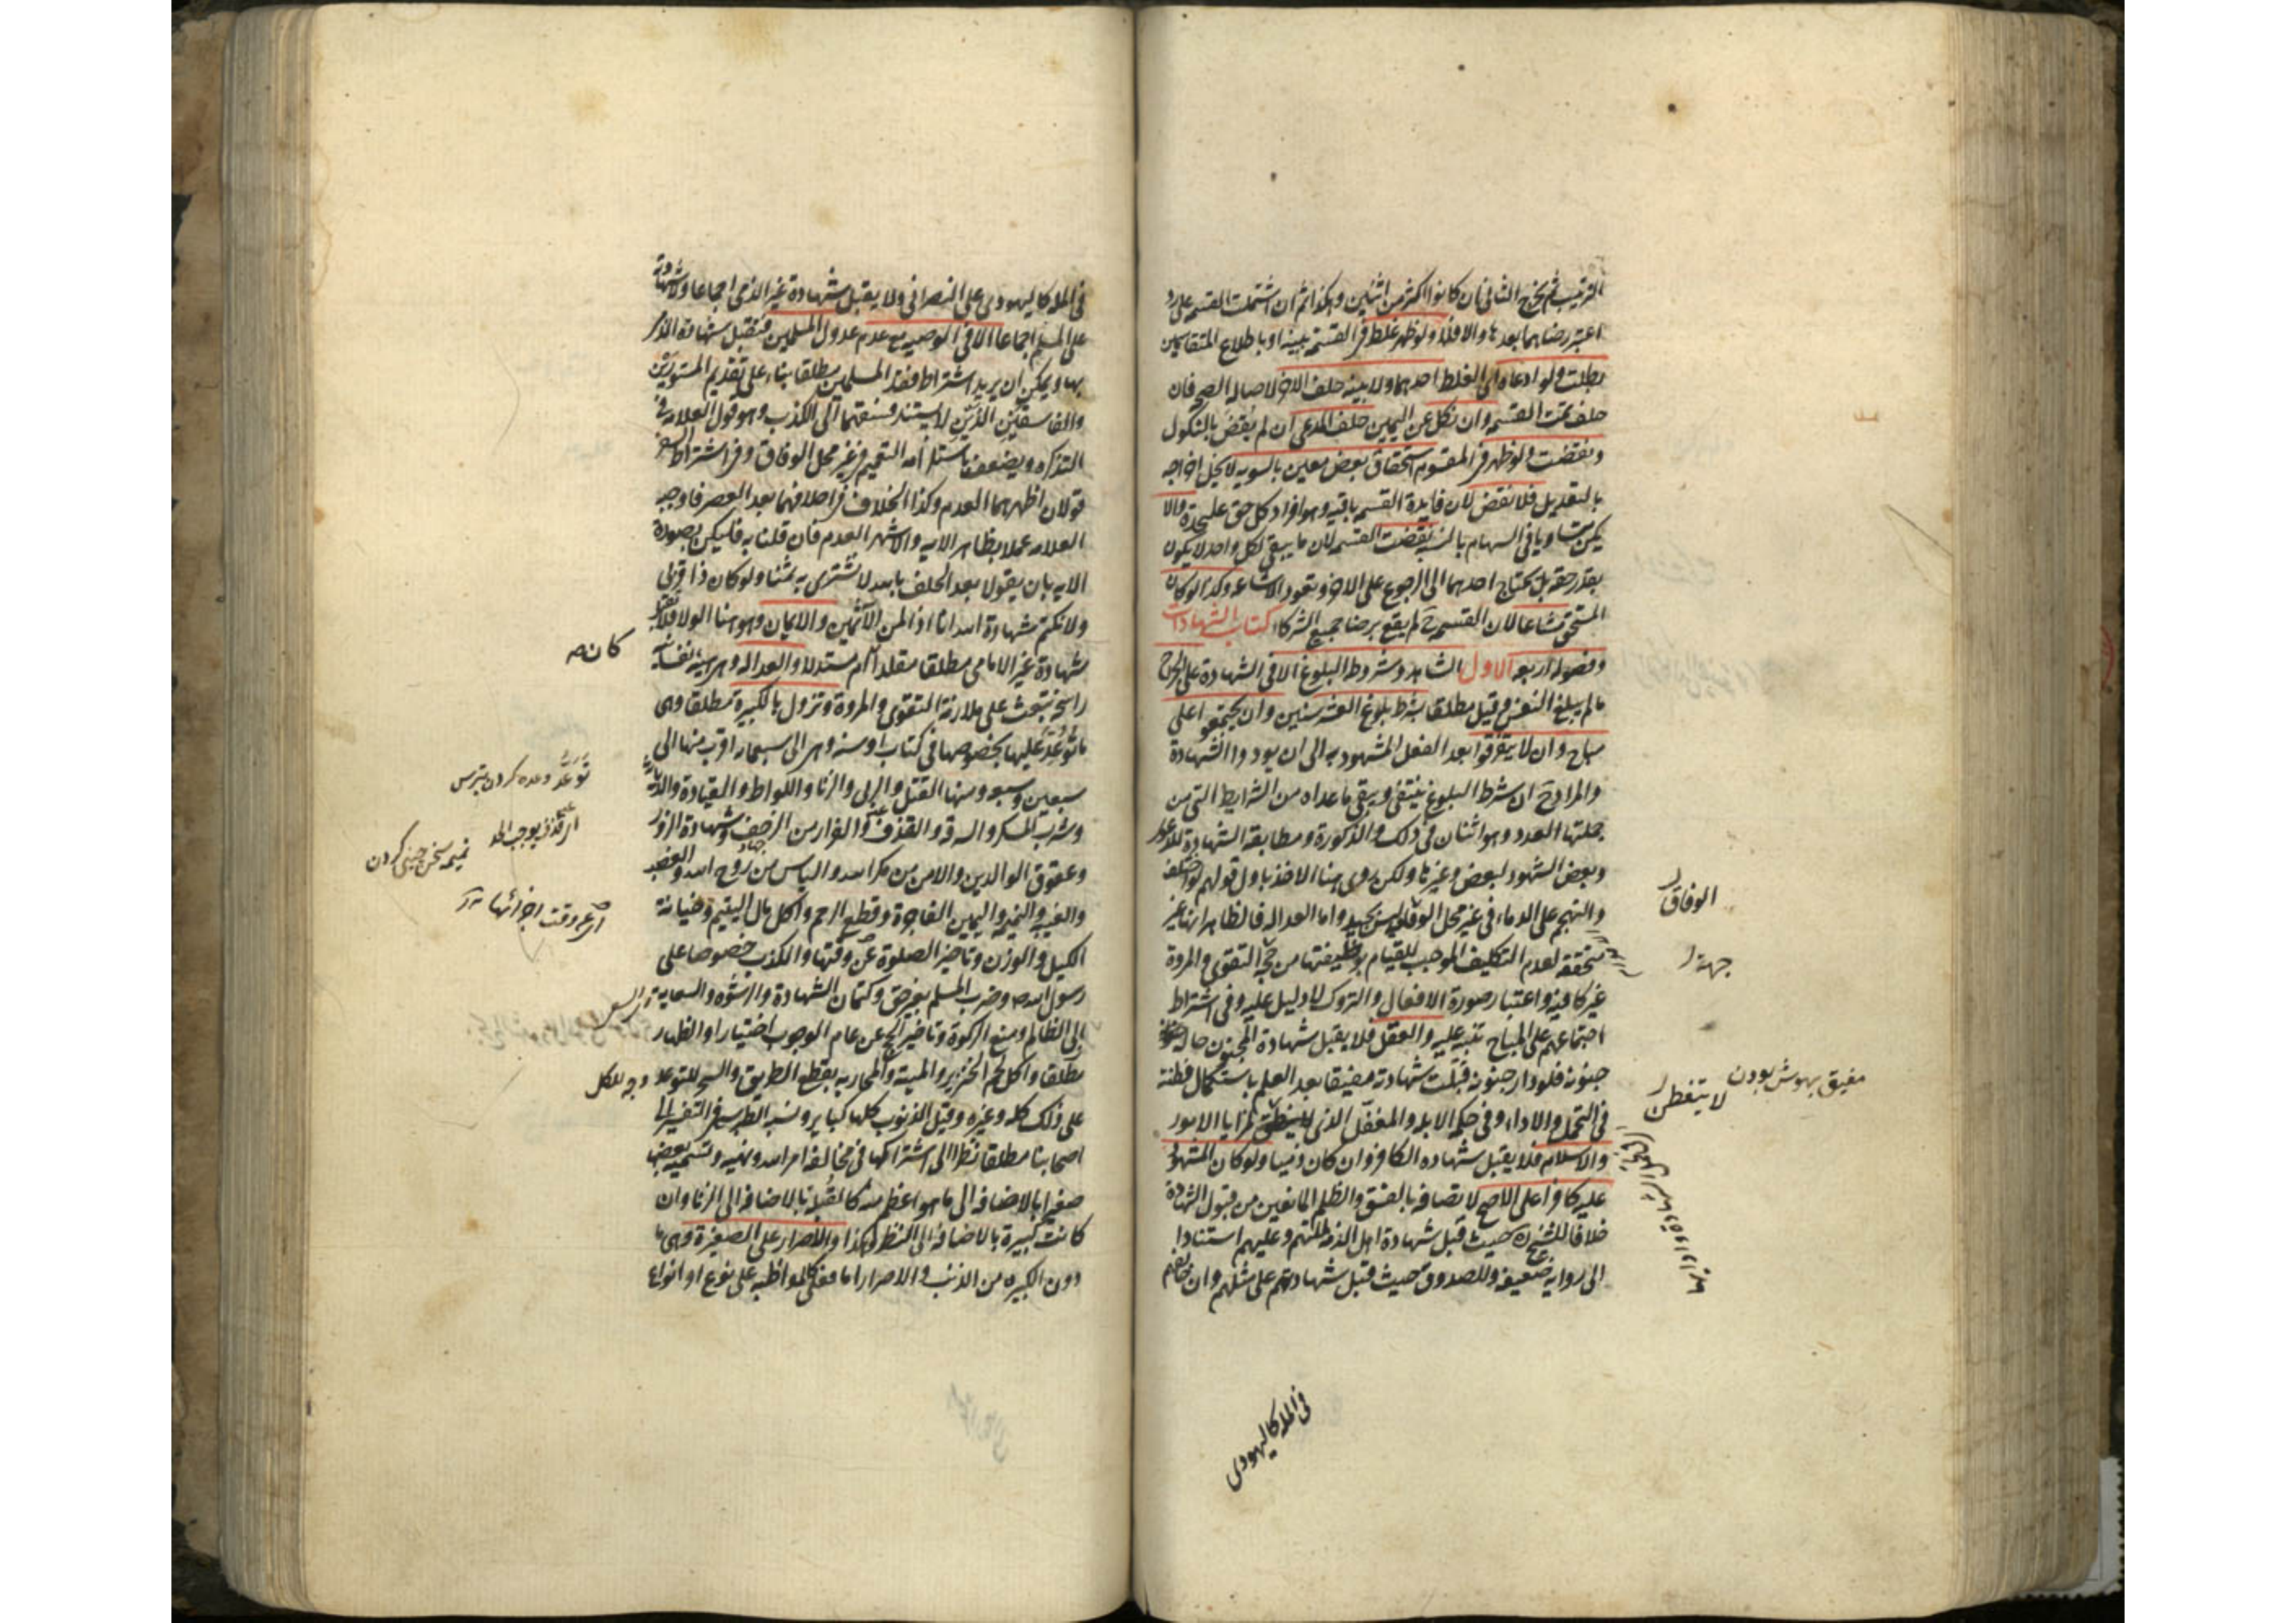 الترتيب ثم يخرج الثاني ان كانوا اكثر من اثنين وهكذا ثم ان اشتملت القسمة على رد
اعتبر رضاهما بعدها والا فلا ولو ظهر غلط في القسمة ببينة او باطلاع المتقاسمين
بطلت ولو ادعاه اي الغلط احدهما ولا بينة حلف الاخر لاصالة الصحة فان
حلف تمت القسمة وان نكل عن اليمين حلف المدعي ان لم يقض بالنكول
ونقضت ولو ظهر في المقسوم استحقاق بعض معين بالسوية لا يخل اخراجه
بالتعديل فلا نقض لان فايدة القسمة باقية وهو افراد كل حق عليحدة والا
يكن متساويا في السهام بالنسبة نقضت القسمة لان ما يبقى لكل واحد لا يكون
بقدر حقه بل يحتاج احدهما الى الرجوع على الاخر وتعود الاشاعة وكذا لو كان
المستحق مشاعا لان القسمة ح لم يقع برضا جميع الشركاء كتاب الشهادات
وفصوله اربعة الاول الشاهد وشروطه البلوغ الا في الشهادة على الجرح
ما لم يبلغ النفس وقيل مطلقا بشرط بلوغ العشر سنين وان يجتمعوا على
مباح وان لا يتفرقوا بعد الفعل المشهود به الى ان يودوا الشهادة
والمراد ح ان شرط البلوغ ينتفى ويبقى ما عداه من الشرايط التي من
جملتها العدد وهو اثنان في ذلك والذكورة ومطابقة الشهادة للدعوى
وبعض الشهود لبعض وغيرها ولكن روى هنا الاخذ باول قولهم لو اختلف
والتهجم على الدماء في غير محل الوفاق ليس بجيد واما العدالة فالظاهر انها غير
متحققة لعدم التكليف الموجب للقيام بوظيفتها من جهة التقوى والمروة
غير كافية واعتبار صورة الافعال والتروك لا دليل عليه وفي اشتراط
اجتماعهم على المباح تنبيه عليه والعقل فلا يقبل شهادة المجنون حالة
جنونه فلو دار جنونه قبلت شهادته مفيقا بعد العلم باستكمال فطنته
في التحمل والاداء وفي حكمه الابله والمغفل الذي لا يتفطن لمزايا الامور
والاسلام فلا يقبل شهاده الكافر وان كان ذميا ولو كان المشهود
عليه كافرا على الاصح لاتصافه بالفسق والظلم المانعين من قبول الشهادة
خلافا للشيخ ره حيث قبل شهادة اهل الذمة لملتهم وعليهم استنادا
الى رواية ضعيفة وللصدوق حيث قبل شهادتهم على مثلهم وان خالفهم
الوفاق
جهة
مفيق بهوش بودن
لا يتفطن
في الملة كاليهودى
في الملة كاليهودى على النصراني ولا يقبل شهادة غير الذمى اجماعا ولا شهادته
على المسلم اجماعا الا في الوصية مع عدم عدول المسلمين فتقبل شهادة الذمى
بها ويمكن ان يريد اشتراط فقد المسلمين مطلقا بناء على تقديم المستورين
والفاسقين الذين لا يستند فسقهما الى الكذب وهو قول العلامة في
التذكره ويضعف باستلزامه التعميم في غير محل الوفاق وفي اشتراط السفر
قولان اظهرهما العدم وكذا الخلاف في احلافهما بعد العصر فاوجبه
العلامة عملا بظاهر الاية والاشهر العدم فان قلنا به فليكن بصورة
الاية بان يقولا بعد الحلف بالله لا نشتري به ثمنا ولو كان ذا قربى
ولا نكتم شهادة الله انا اذا لمن الآثمين والايمان وهو هنا الولاء فلا تقبل
شهادة غير الامامي مطلقا مقلدا كان ام مستدلا والعدالة وهي هيئة نفسانية
راسخة تبعث على ملازمة التقوى والمروة وتزول بالكبيرة مطلقا وهى
ما توعد عليها بخصوصها في كتاب او سنة وهى الى سبعمائة اقرب منها الى
سبعين وسبعة ومنها القتل والربى والزنا واللواط والقيادة والدياثة
وشرب المسكر والسرقة والقذف والفرار من الزحف وشهادة الزور
وعقوق الوالدين والامن من مكر الله والياس من روح الله والغصب
والغيبة والنميمة واليمين الفاجرة وقطع الرحم واكل مال اليتيم وخيانة
الكيل والوزن وتاخير الصلوة عن وقتها والكذب خصوصا على
رسول الله ص وضرب المسلم بغير حق وكتمان الشهادة والرشوة والسعاية
الى الظالم ومنع الزكوة وتاخير الحج عن عام الوجوب اختيارا والظهار
مطلقا واكل لحم الخنزير والميتة والمحاربة بقطع الطريق والسحر للتوعد
على ذلك كله وغيره وقيل الذنوب كلها كباير ونسبه الطبرسي في التفسير الى
اصحابنا مطلقا نظرا الى اشتراكها في مخالفة امر الله ونهيه وتسمية بعضها
صغيرا بالاضافة الى ما هو اعظم منه كالقبلة بالاضافة الى الزنا وان
كانت كبيرة بالاضافة الى النظر وهكذا والاصرار على الصغيرة وهى ما
دون الكبيره من الذنب والاصرار اما فعلي كالمواظبة على نوع او انواع
كان صه
توعد وعده كردن بترس
نميمه سخن چينى كردن